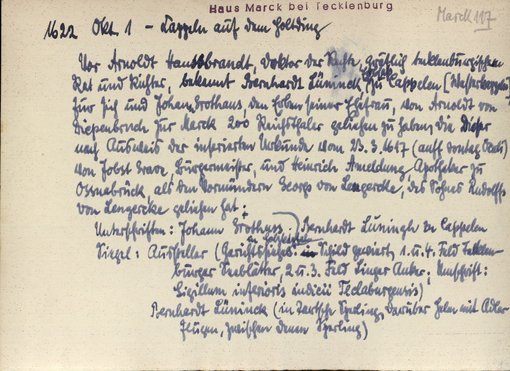 Haus Marck bei Tecklenburg
Marck 117
1622 Okt 1 - Cappeln auf dem Goltding
Vor Arnoldt Haussbrandt, Doktor der Rechte, gräflich tecklenburgischen
Rat und Richter, bekennt Bernhardt Lüninck zu Cappelen [Westerkappeln]
für sich und Johann Grothaus den Erben seiner Ehefrau, von Arnoldt von
Diepenbruch zur Marck 200 Reichsthaler geliehen zu haben, die dieser
nach Ausweis der inserierten Urkunde vom 23.3.1617 (auff Sontag Oculi)
von Jobst Grave, Bürgermeister, und Heinrich Ameldung Apotheker zu
Ossnabrück, als den Vormündern Georgs von Lengercke, des Sohnes Rudolffs
von Lengercke geliehen hat;
Unterschriften: Johann Grothauss, Bernhardt Lüningh zu Cappelen
Siegel: Aussteller (Gerichtssiegel: Schild geviert, 1. u. 4. Feld Tecklen-
burger Seeblätter, 2. u. 3. Feld Linger Anker; Umschrift:
Sigillum inferioris indicii Teclaburgensis)
Bernhardt Lüninck (in Tartsche Sperling, darüber Helm mit Adler-
flügen, zwischen denen Sperling)